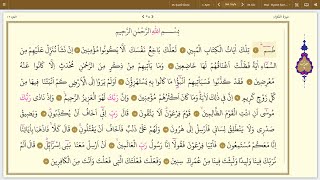 بِسْمِ اللَّهِ الرَّحْمَٰنِ الرَّحِيمِ
طسم تِلْكَ آيَاتُ الْكِتَابِ الْمُبِينِ لَعَلَّكَ بَاخِعٌ نَفْسَكَ أَلَّا يَكُونُوا مُؤْمِنِينَ إِنْ نَشَأْ نُنَزِّلْ عَلَيْهِمْ مِنَ
السَّمَاءِ آيَةً فَظَلَّتْ أَعْنَاقُهُمْ لَهَا خَاضِعِينَ وَمَا يَأْتِيهِمْ مِنْ ذِكْرٍ مِنَ الرَّحْمَٰنِ مُحْدَثٍ إِلَّا كَانُوا عَنْهُ
مُعْرِضِينَ فَقَدْ كَذَّبُوا فَسَيَأْتِيهِمْ أَنْبَاءُ مَا كَانُوا بِهِ يَسْتَهْزِئُونَ أَوَلَمْ يَرَوْا إِلَى الْأَرْضِ كَمْ أَنْبَتْنَا فِيهَا مِنْ
كُلِّ زَوْجٍ كَرِيمٍ إِنَّ فِي ذَٰلِكَ لَآيَةً وَمَا كَانَ أَكْثَرُهُمْ مُؤْمِنِينَ وَإِنَّ رَبَّكَ لَهُوَ الْعَزِيزُ الرَّحِيمُ وَإِذْ نَادَىٰ رَبُّكَ
مُوسَىٰ أَنِ ائْتِ الْقَوْمَ الظَّالِمِينَ قَوْمَ فِرْعَوْنَ أَلَا يَتَّقُونَ قَالَ رَبِّ إِنِّي أَخَافُ أَنْ يُكَذِّبُونِ وَيَضِيقُ
صَدْرِي وَلَا يَنْطَلِقُ لِسَانِي فَأَرْسِلْ إِلَىٰ هَارُونَ وَلَهُمْ عَلَيَّ ذَنْبٌ فَأَخَافُ أَنْ يَقْتُلُونِ قَالَ كَلَّا فَاذْهَبَا بِآيَاتِنَا
إِنَّا مَعَكُمْ مُسْتَمِعُونَ فَأْتِيَا فِرْعَوْنَ فَقُولَا إِنَّا رَسُولُ رَبِّ الْعَالَمِينَ أَنْ أَرْسِلْ مَعَنَا بَنِي إِسْرَائِيلَ قَالَ أَلَمْ
نُرَبِّكَ فِينَا وَلِيدًا وَلَبِثْتَ فِينَا مِنْ عُمُرِكَ سِنِينَ وَفَعَلْتَ فَعْلَتَكَ الَّتِي فَعَلْتَ وَأَنْتَ مِنَ الْكَافِرِينَ